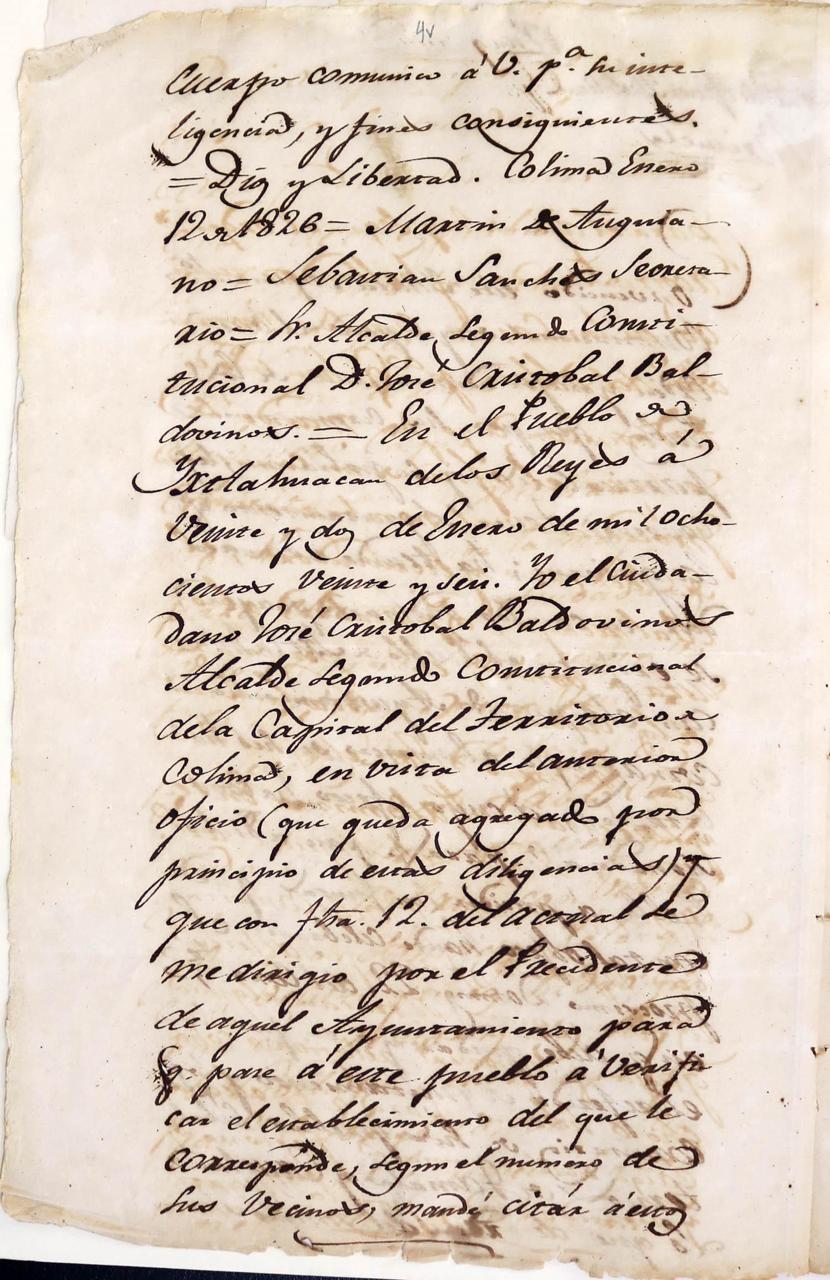 4v
Cuerpo comunico á V. pª. su inte-
ligencia, y fines consiguientes.
= Dios y Libertad. Colima Enero
12 de 1826 = Martin de Anguia-
no = Sebastian Sanches Secreta-
rio = Sr. Alcalde Segundo Consti-
tucional D. José Cristobal Bal-
dovinos. = En el Pueblo de
Yxtlahuacan delos Reyes á
Veinte y dos de Enero de mil ocho-
cientos veinte y seis. Yo el Ciuda-
dano José Cristobal Baldovinos
Alcalde Segundo Constitucional
dela Capital del Territorio de
Colima, en vista del anterior
oficio (que queda agregado por
principio de estas diligencias) y
que con fha. 12. del actual se
me dirigio por el Precidente
de aquel Ayuntamiento para
q. pase á este pueblo á Verifi
car el establecimiento del que le
corresponde, segun el numero de
sus Vecinos, mandé citár á estos